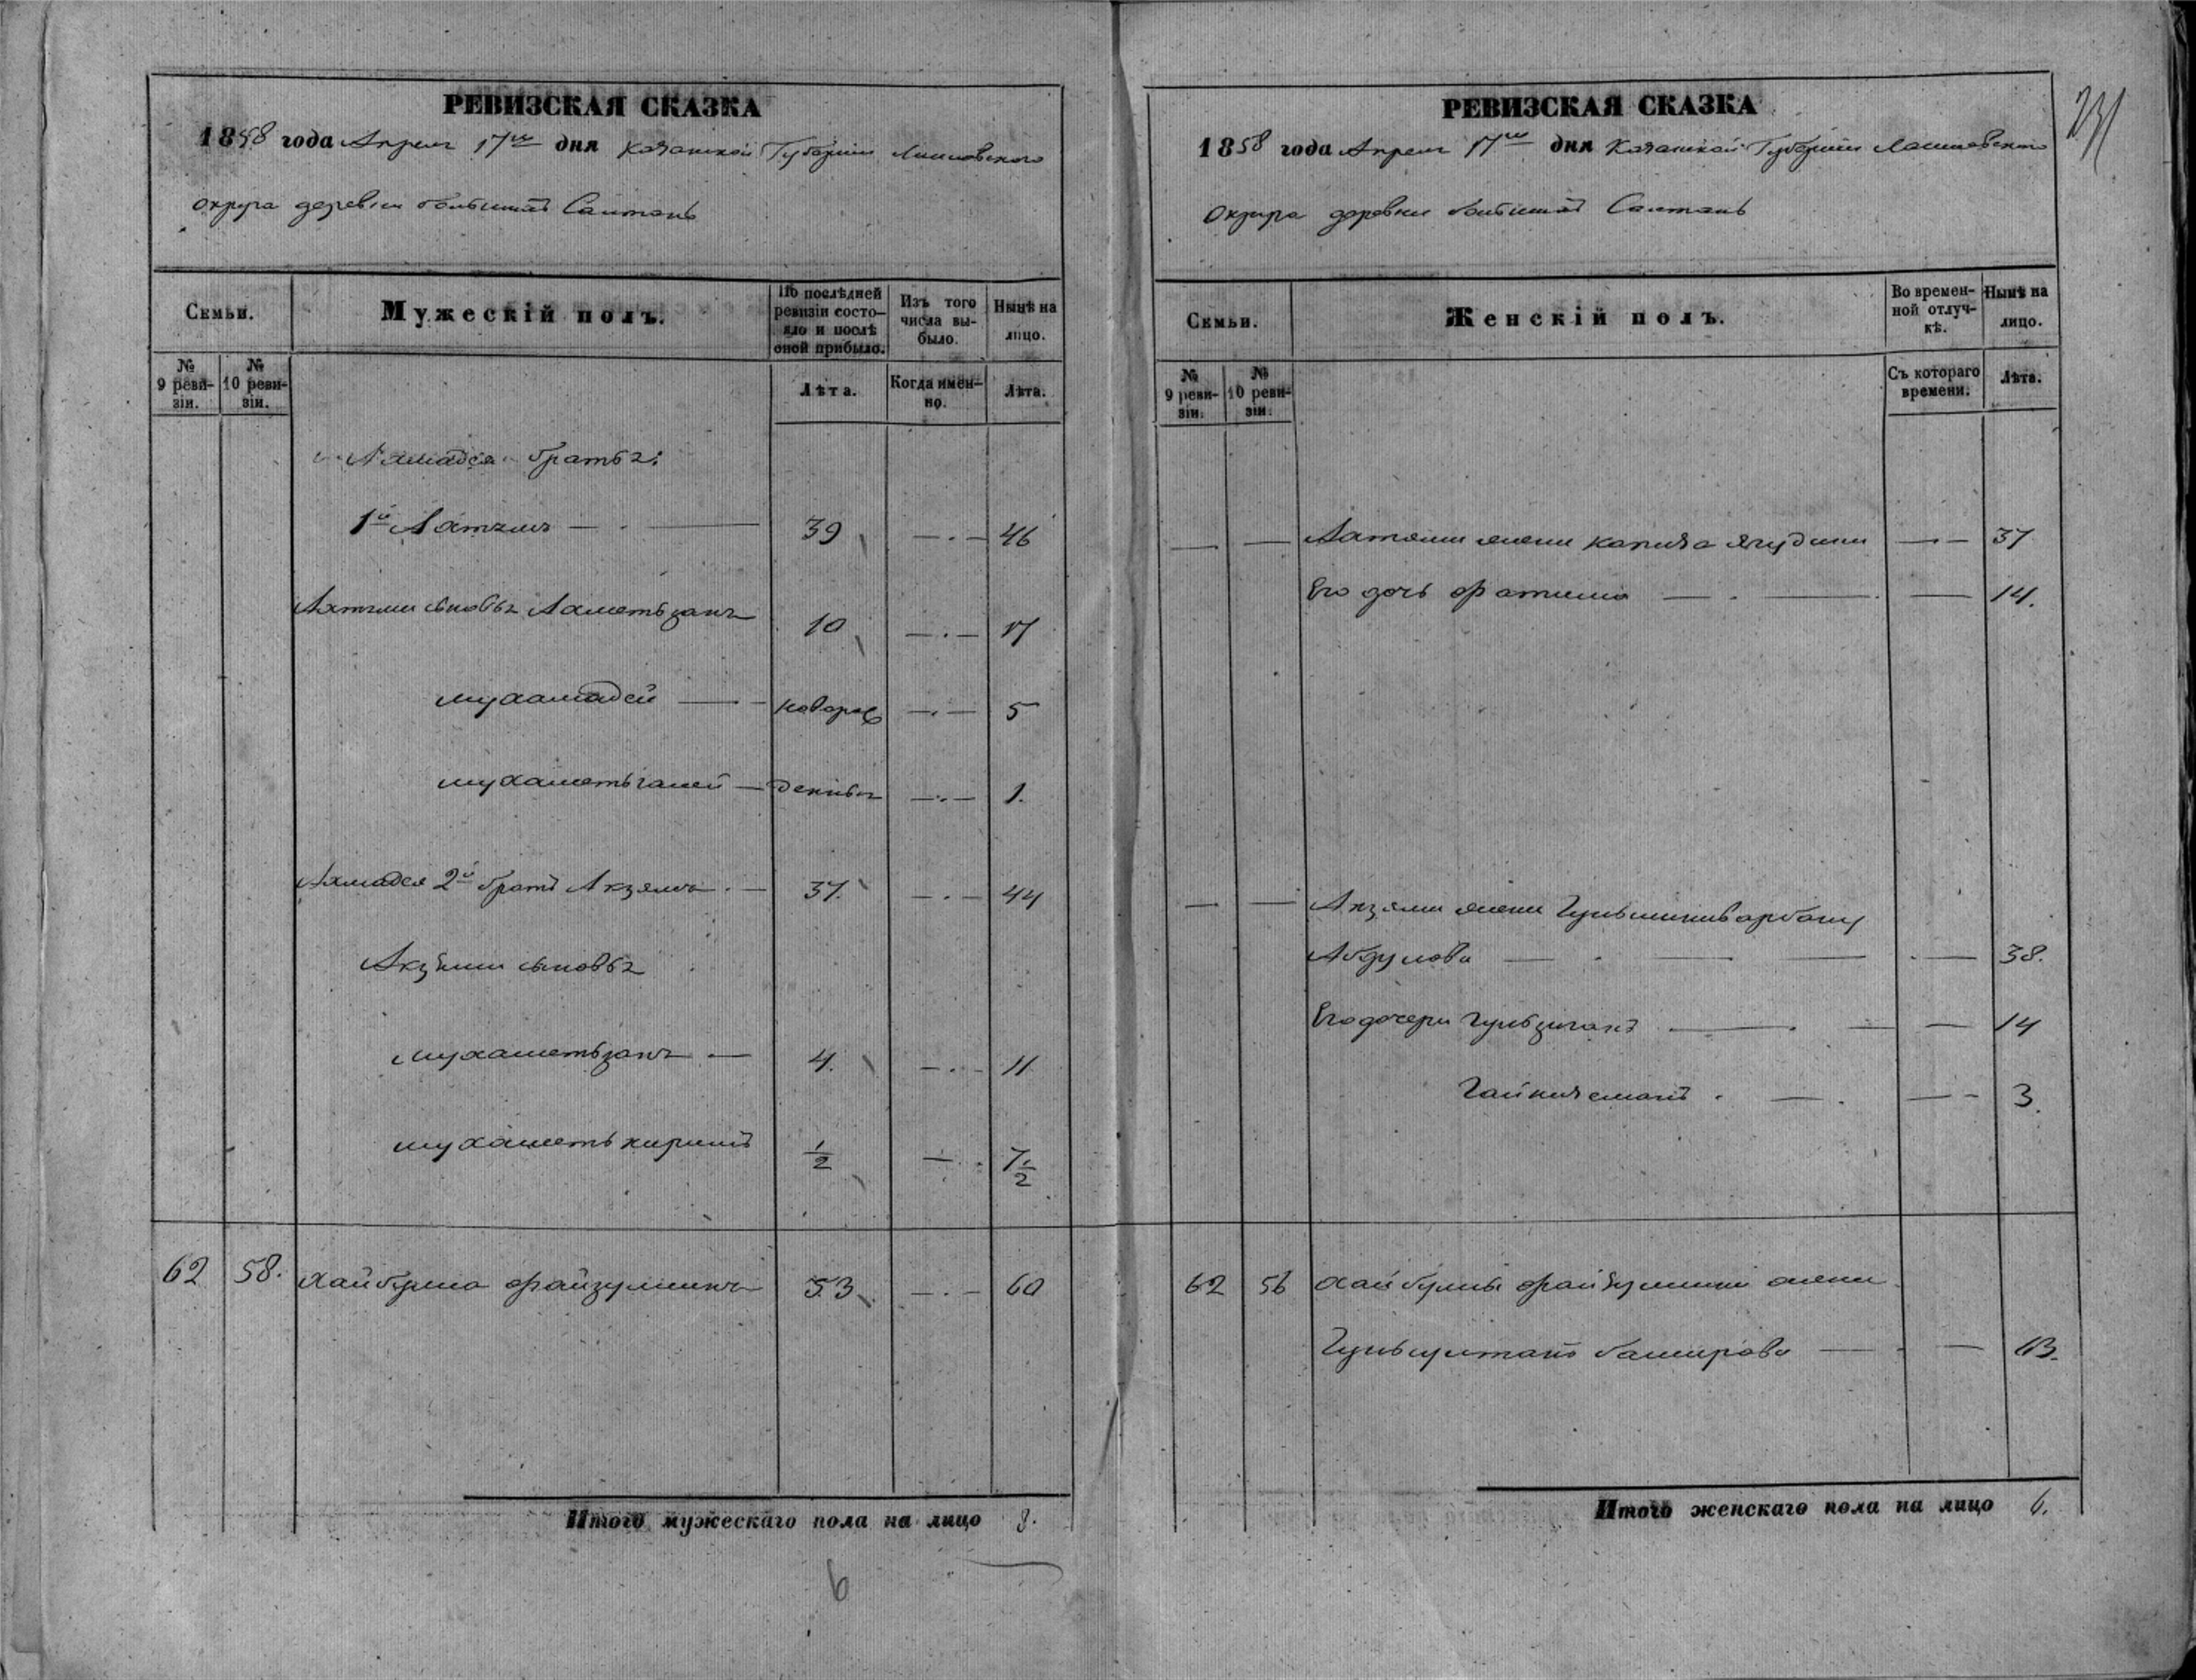 РЕВИЗСКАЯ СКАЗКА
1858 года Апреля 17го дня Казанской Губернии Лаишевского
округа деревни большихъ Салтанъ
Семьи.
Мужескій полъ.
По послѣдней ревизіи состояло и послѣ оной прибыло.
Изъ того числа выбыло.
Нынѣ на лицо.
№ 9 ревизіи.
№ 10 ревизіи.
Лѣта.
Когда именно.
Лѣта.
Ахмадея братья:
1й Ахтямъ — 39 — 46
Ахтями сыновья Ахметьзянъ 10 — 17
Мухамадей — новорож — 5
Мухаметьгалей — — 1.
Ахмадея 2й братъ Акзямъ — 37. — 44
Акзями сыновья
Мухаметьзянъ — 4. — 11
Мухаметькиримъ 1/2 — 7 1/2
62 58. Хайбулла Файзуллинъ 53 — 60
Итого мужескаго пола на лицо 8.
6
РЕВИЗСКАЯ СКАЗКА
231
1858 года Апреля 17го дня Казанской Губернии Лаишевского
Округа деревни большихъ Салтанъ
Семьи.
Женскій полъ.
Во временной отлучкѣ.
Нынѣ на лицо.
№ 9 ревизіи.
№ 10 ревизіи.
Съ котораго времени.
Лѣта.
— — Ахтями жена Ягудина — 37
Его дочь Фатима — — 14.
— — Акзями жена
Абдулова — — 38.
Его дочери Гульзиганъ — — 14
— — 3.
62 56 Хайбуллы Файзуллина жена
Гульсултанъ Баширова — — 63.
Итого женскаго пола на лицо 6.